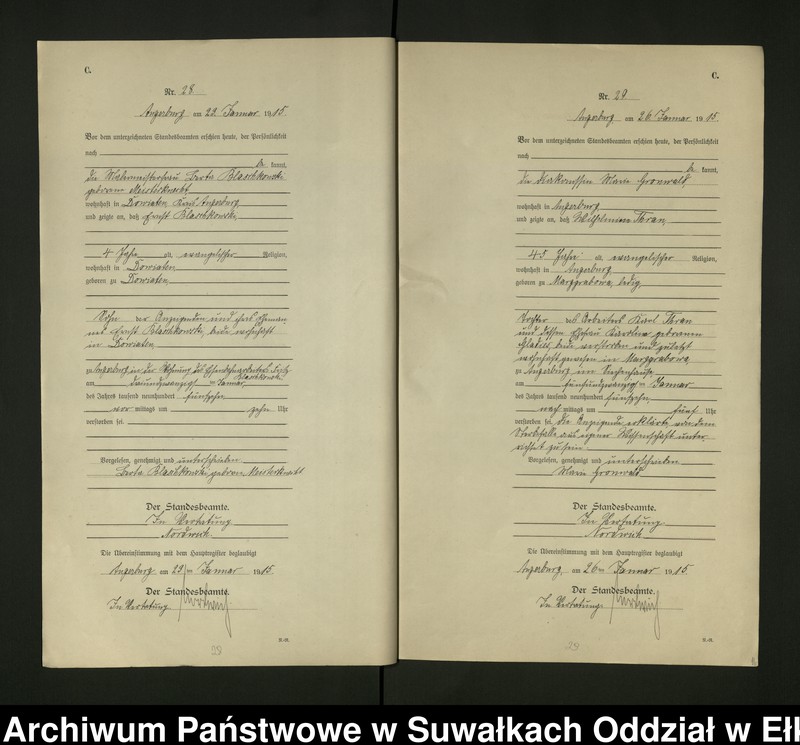 C.
Nr. 28
Angerburg am 23. Januar 1915.
Vor dem unterzeichneten Standesbeamten erschien heute, der Persönlichkeit
nach
be kannt,
die Malermeisterfrau Berta Blaschkowski
geborene
wohnhaft in Dowiaten Kreis Angerburg
und zeigte an, daß Ernst Blaschkowski,
4 Jahre alt, evangelischer Religion,
wohnhaft in Dowiaten
geboren zu Dowiaten,
Sohn der Anzeigenden und ihres Eheman
nes Ernst Blaschkowski, beide wohnhaft
in Dowiaten
zu Angerburg in der Wohnung des Fritz
Blaschkowski
am dreiundzwanzigsten Januar
des Jahres tausend neunhundert fünfzehn,
vor mittags um zehn Uhr
verstorben sei.
Vorgelesen, genehmigt und unterschrieben
Berta Blaschkowski geborene
Der Standesbeamte.
In Vertretung
Nordwich
Die Übereinstimmung mit dem Hauptregister beglaubigt
Angerburg am 23ten Januar 1915.
Der Standesbeamte.
In Vertretung
C.
Nr. 29
Angerburg am 26. Januar 1915.
Vor dem unterzeichneten Standesbeamten erschien heute, der Persönlichkeit
nach
be kannt,
die Diakonissin Marie Gronwald,
wohnhaft in Angerburg
und zeigte an, daß Wilhelmine Thran,
45 Jahre alt, evangelischer Religion,
wohnhaft in Angerburg
geboren zu Marggrabowa, ledig,
Tochter des Arbeiters Karl Thran
und dessen Ehefrau Karoline geborenen
beide verstorben und zuletzt
wohnhaft gewesen in Marggrabowa
zu Angerburg im Siechenhause
am fünfundzwanzigsten Januar
des Jahres tausend neunhundert fünfzehn,
nach mittags um fünf Uhr
verstorben sei. Die Anzeigende erklärte, von dem
Sterbefalle aus eigener Wissenschaft unter
richtet zu sein
Vorgelesen, genehmigt und unterschrieben
Marie Gronwald
Der Standesbeamte.
In Vertretung
Nordwich
Die Übereinstimmung mit dem Hauptregister beglaubigt
Angerburg, am 26ten Januar 1915.
Der Standesbeamte.
In Vertretung
29
Archiwum Państwowe w Suwałkach Oddział w Ełk